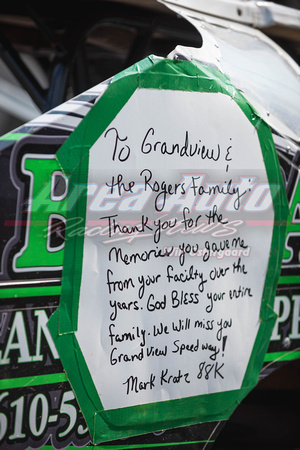 To Grandview &
the Rogers family!
Thank you for the
Memories you gave me
from your facility over the
years. God Bless your entire
family. We will miss you
Grandview Speedway!
Mark Kratz 88K
Area Auto
Racing News
610-5